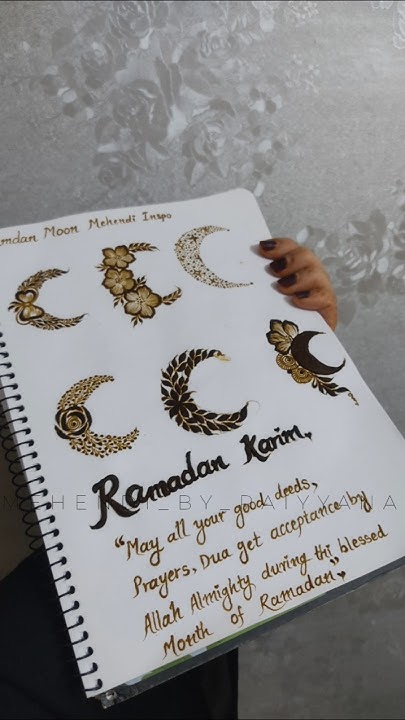 Ramdan Moon Mehendi Inspo
Ramadan Karim,
MEHENDI_BY_RAIYYANA
"May all your good deeds,
Prayers, Dua get acceptance by
Allah Almighty during thi blessed
Month of Ramadan"